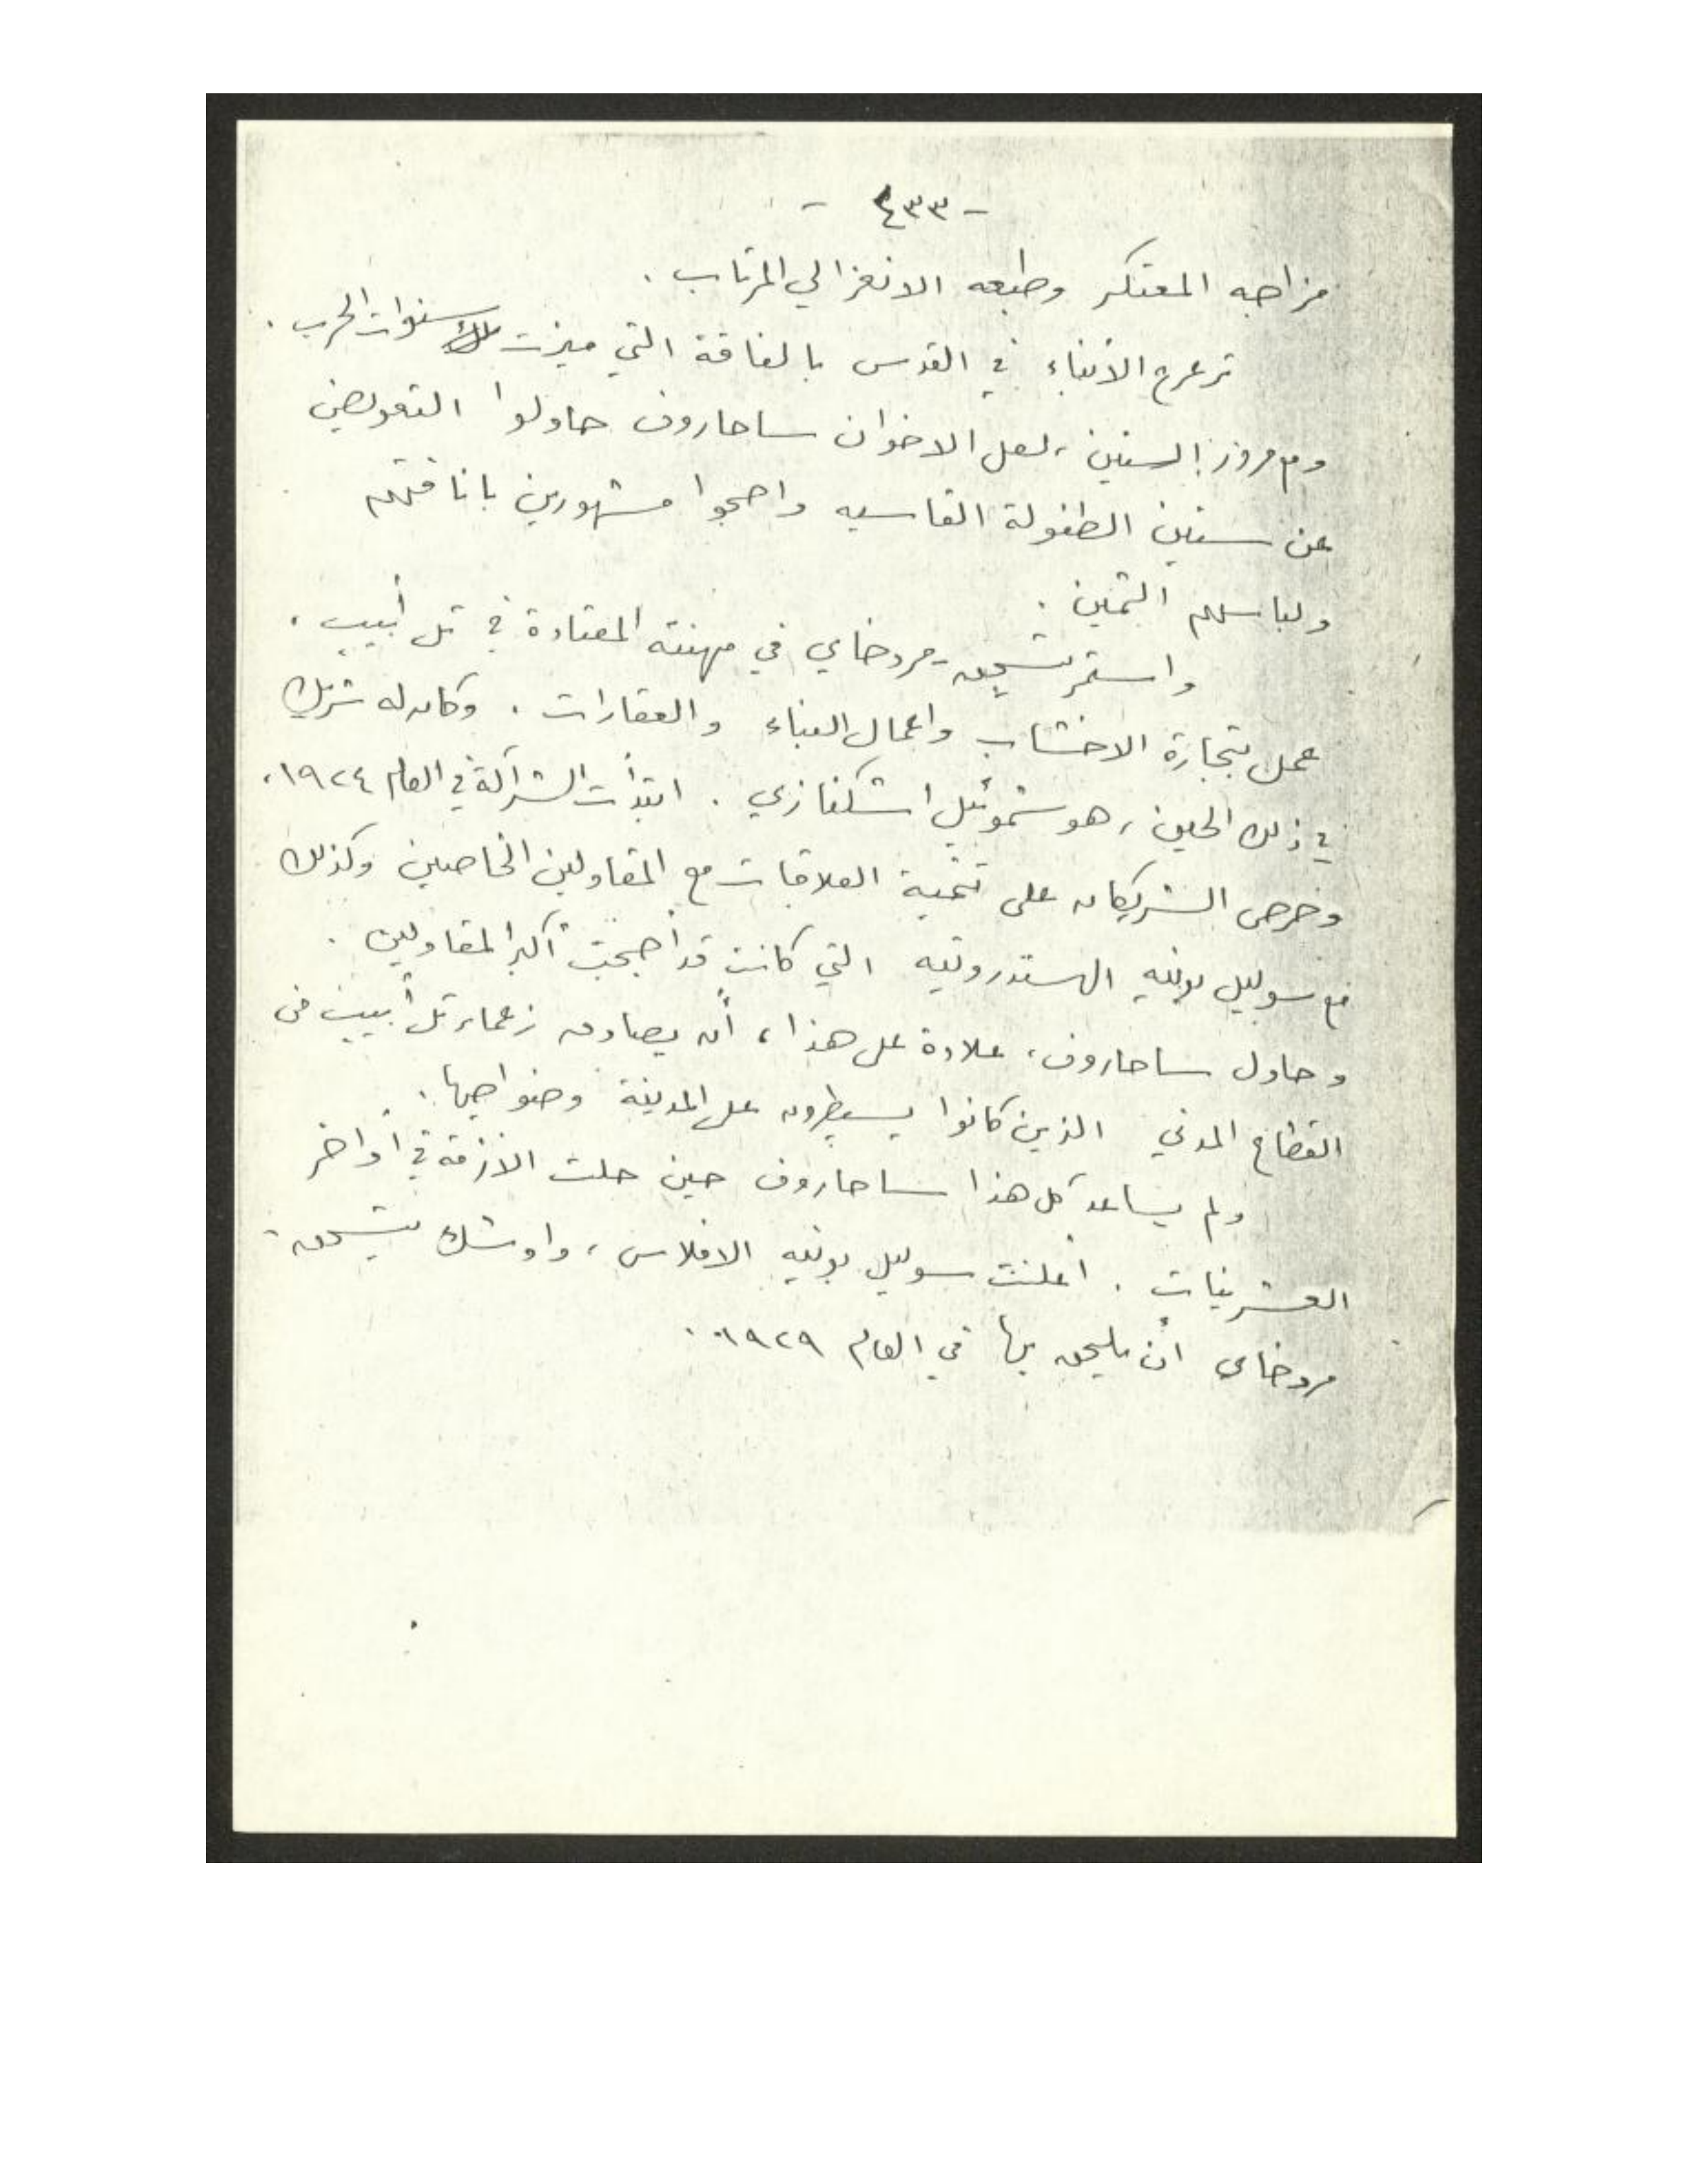 - ٤٣٣ -
مزاجه المعتكر وطبعه الانعزالي المرتاب .
ترعرع الأبناء في القدس بالفاقة التي ميزت سنوات الحرب .
ومع مرور السنين ، لعل الاخوان ساحاروف حاولوا التعويض
عن سنين الطفولة القاسيه واصبحوا مشهورين باناقتهم
ولباسهم الثمين .
واستمر يتسحق - مردخاي في مهنته المعتادة في تل أبيب ،
عمل بتجارة الاخشاب واعمال البناء والعقارات . وكان له شريك
في ذلك الحين ، هو شموئيل اشكنازي . ابتدأت الشراكة في العام ١٩٢٤ ،
وحرص الشريكان على تنمية العلاقات مع المقاولين الخاصين وكذلك
مع سوليل بونيه الهستدروتيه التي كانت قد أصبحت أكبر المقاولين .
وحاول ساحاروف ، علاوة على هذا ، أن يصادق زعماء تل أبيب من
القطاع المدني الذين كانوا يسيطرون على المدينة وضواحيها .
ولم يساعد كل هذا ساحاروف حين حلت الازمة في أواخر
العشرينات . أعلنت سوليل بونيه الافلاس ، واوشك يتسحق -
مردخاي أن يلحق بها في العام ١٩٢٩ .